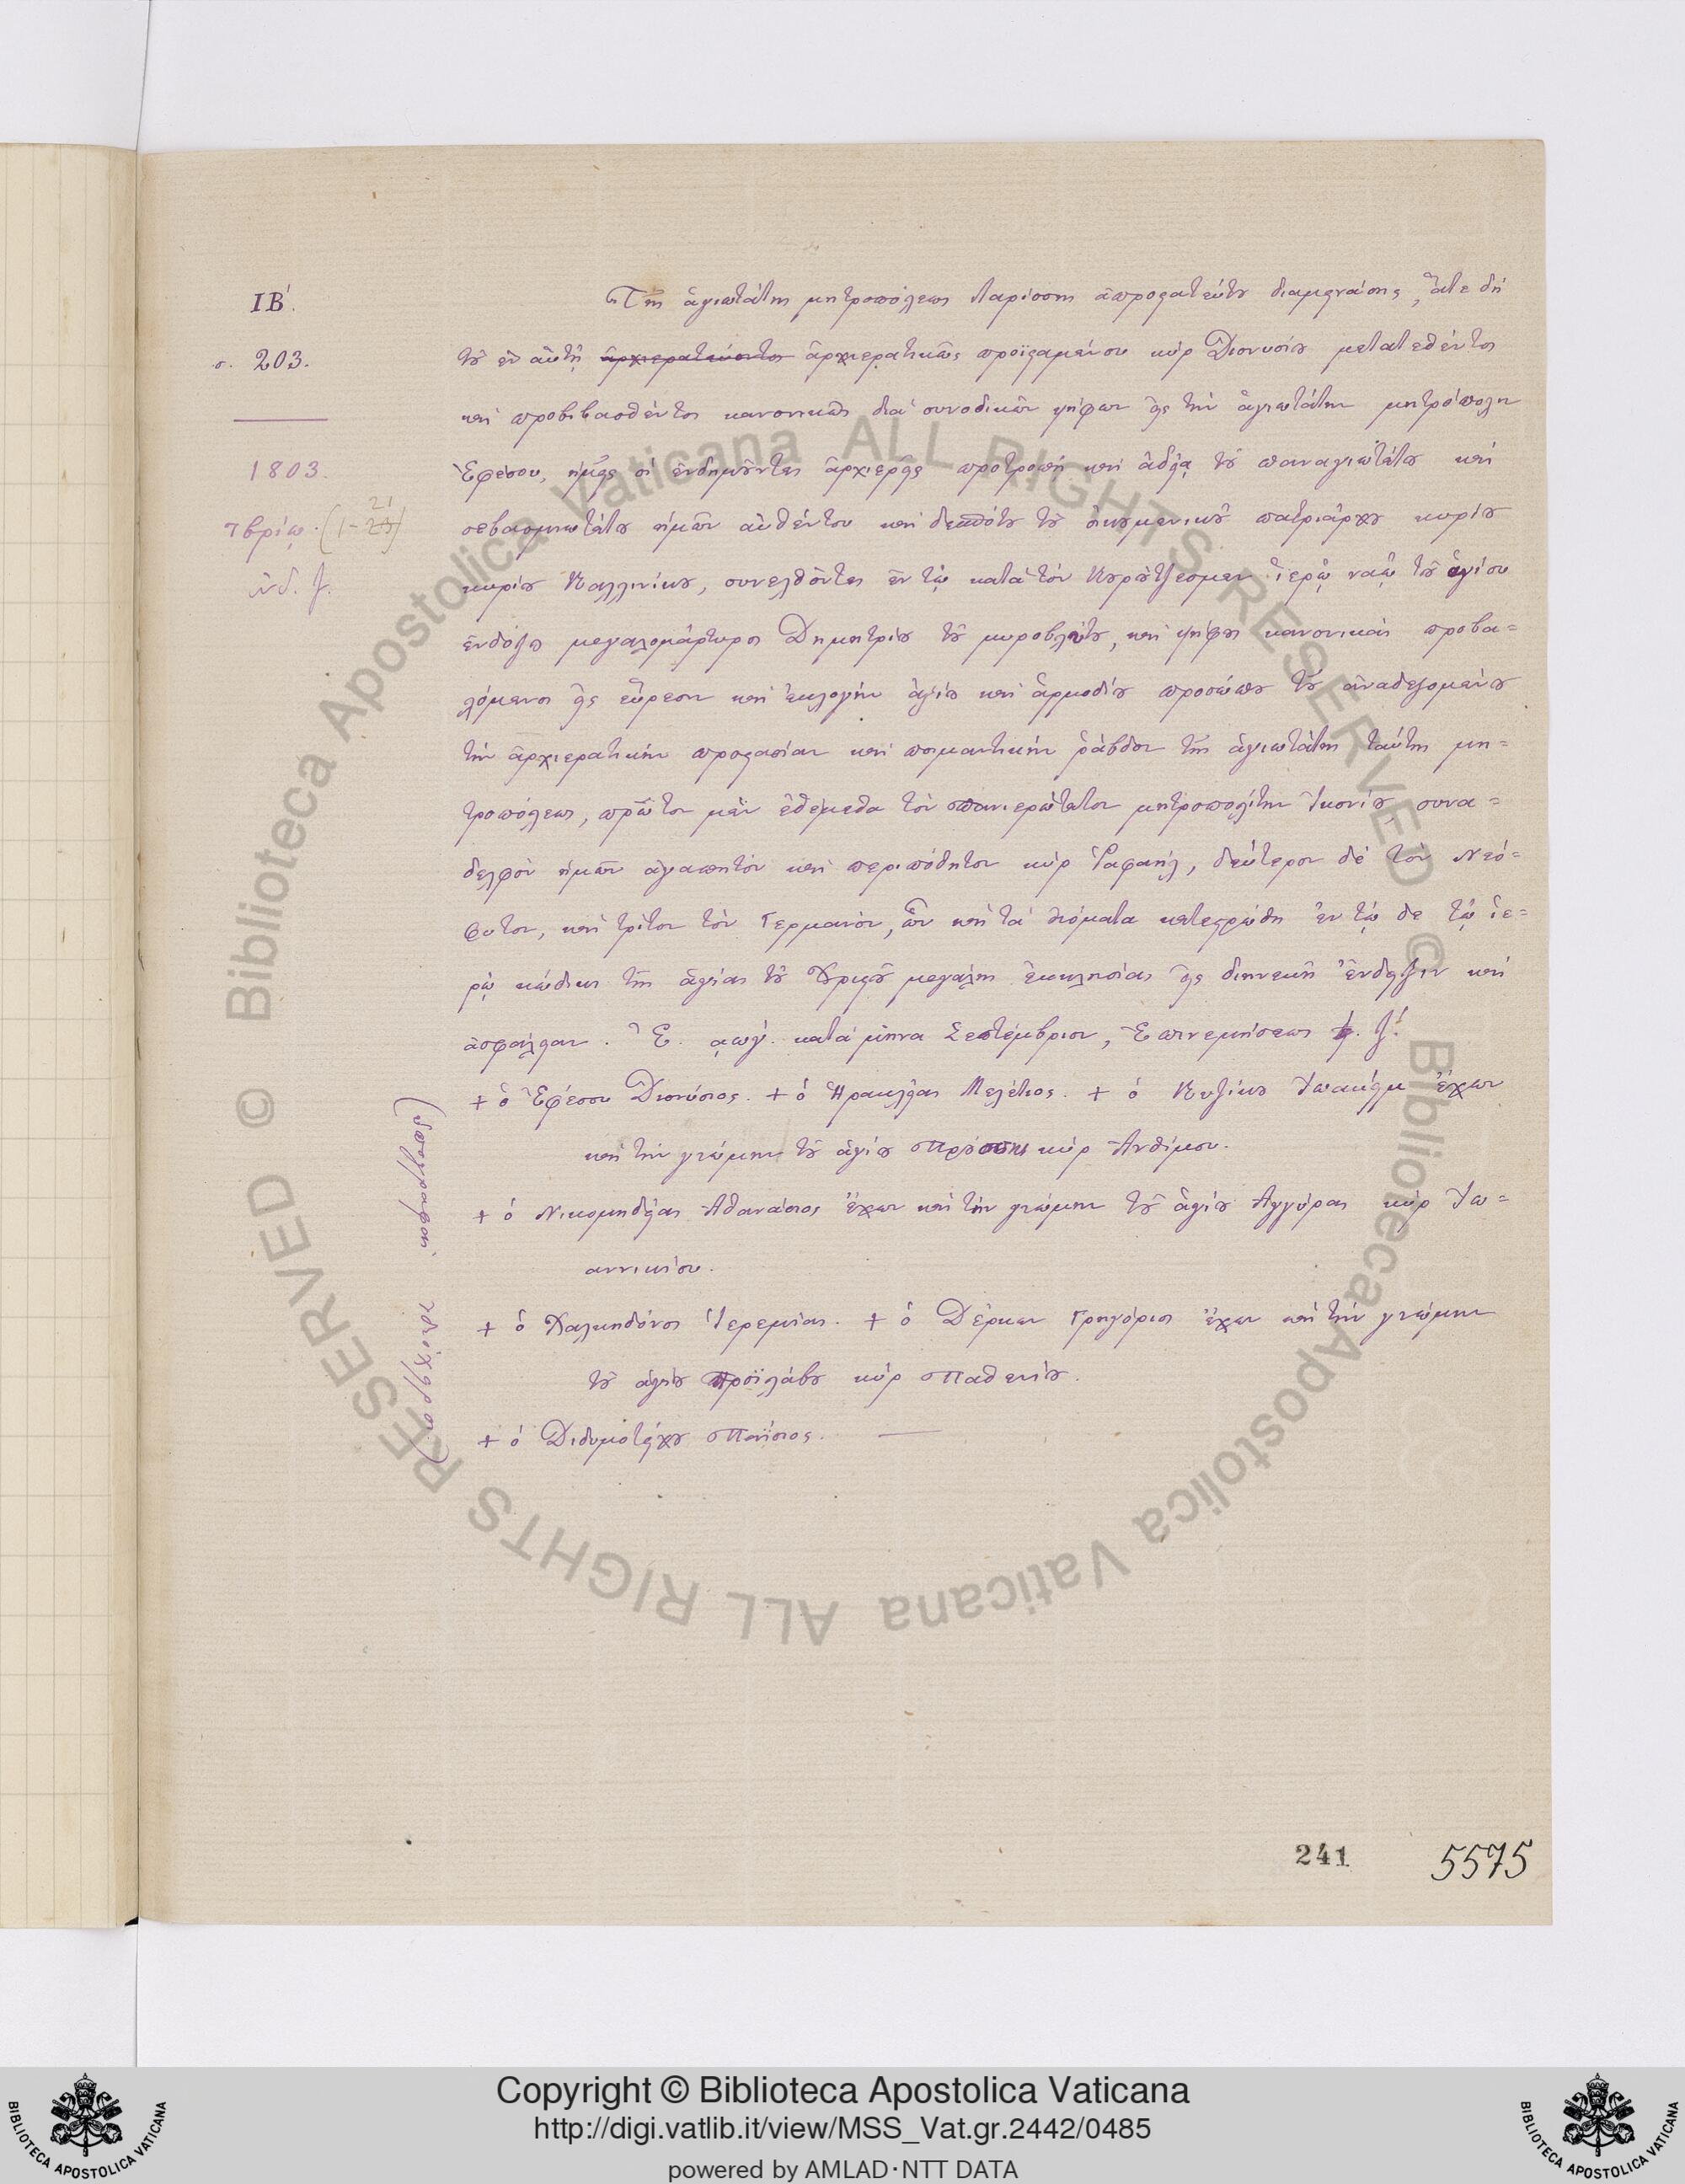 ΙΒ΄.
σ. 203.
1803.
7βρίῳ. (1-23) 21
ἰνδ. ζ.
Τῆς ἁγιωτάτης μητροπόλεως Λαρίσσης ἀπροστατεύτου διαμεινάσης, ἅτε δὴ
τοῦ ἐν αὐτῇ ἀρχιερατεύοντος ἀρχιερατικῶς προϊσταμένου κὺρ Διονυσίου μετατεθέντος
καὶ προβιβασθέντος κανονικῶς διὰ συνοδικῶν ψήφων εἰς τὴν ἁγιωτάτην μητρόπολιν
Ἐφέσου, ἡμεῖς οἱ ἐνδημοῦντες ἀρχιερεῖς προτροπῇ καὶ ἀδείᾳ τοῦ παναγιωτάτου καὶ
σεβασμιωτάτου ἡμῶν αὐθέντου καὶ δεσπότου τοῦ οἰκουμενικοῦ πατριάρχου κυρίου
κυρίου Καλλινίκου, συνελθόντες ἐν τῷ κατὰ τὸν Κουροῦτζεσμεν ἱερῷ ναῷ τοῦ ἁγίου
ἐνδόξου μεγαλομάρτυρος Δημητρίου τοῦ μυροβλύτου, καὶ ψήφους κανονικὰς προβα=
λόμενοι εἰς εὕρεσιν καὶ ἐκλογὴν ἀξίου καὶ ἁρμοδίου προσώπου τοῦ ἀναδεξομένου
τὴν ἀρχιερατικὴν προστασίαν καὶ ποιμαντικὴν ῥάβδον τῆς ἁγιωτάτης ταύτης μη=
τροπόλεως, πρῶτον μὲν ἐθέμεθα τὸν πανιερώτατον μητροπολίτην Ἰκονίου, συνα=
δελφὸν ἡμῶν ἀγαπητὸν καὶ περιπόθητον κὺρ Ῥαφαήλ, δεύτερον δὲ τὸν Νεό=
φυτον, καὶ τρίτον τὸν Γερμανόν, ὧν καὶ τὰ ὀνόματα κατεστρώθη ἐν τῷδε τῷ ἱε=
ρῷ κώδικι τῆς ἁγίας τοῦ Χριστοῦ μεγάλης ἐκκλησίας εἰς διηνεκῆ ἔνδειξιν καὶ
ἀσφάλειαν. Ἐ. αωγ΄. κατὰ μῆνα Σεπτέμβριον, Ἐπινεμήσεως ζ΄.
+ ὁ Ἐφέσου Διονύσιος. + ὁ Ἡρακλείας Μελέτιος. + ὁ Κυζίκου Ἰωακεὶμ ἔχων
καὶ τὴν γνώμην τοῦ ἁγίου Προύσης κὺρ Ἀνθίμου.
+ ὁ Νικομηδείας Ἀθανάσιος ἔχων καὶ τὴν γνώμην τοῦ ἁγίου Ἀγκύρας κὺρ Ἰω=
αννικίου.
+ ὁ Χαλκηδόνος Ἱερεμίας. + ὁ Δέρκων Γρηγόριος ἔχων καὶ τὴν γνώμην
τοῦ ἁγίου Προϊλάβου κὺρ Παρθενίου.
+ ὁ Διδυμοτείχου Παΐσιος.
241 5575
© Biblioteca Apostolica Vaticana ALL RIGHTS RESERVED © Biblioteca Apostolica Vaticana ALL RIGHTS RESERVED
Copyright © Biblioteca Apostolica Vaticana
http://digi.vatlib.it/view/MSS_Vat.gr.2442/0485
powered by AMLAD·NTT DATA
BIBLIOTECA APOSTOLICA VATICANA
BIBLIOTECA APOSTOLICA VATICANA